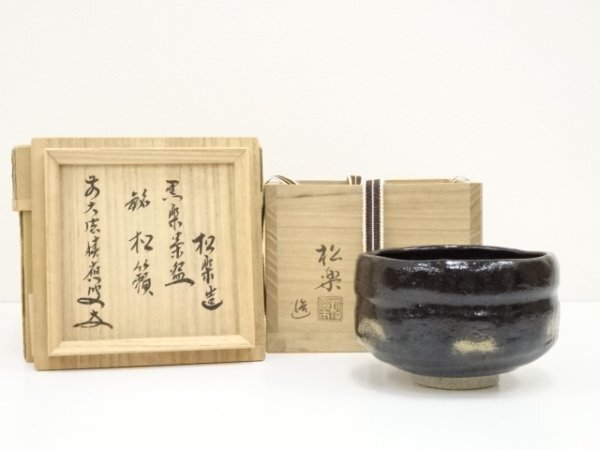 松楽造
黒楽茶盌
銘 松籟
前大徳
松楽
造